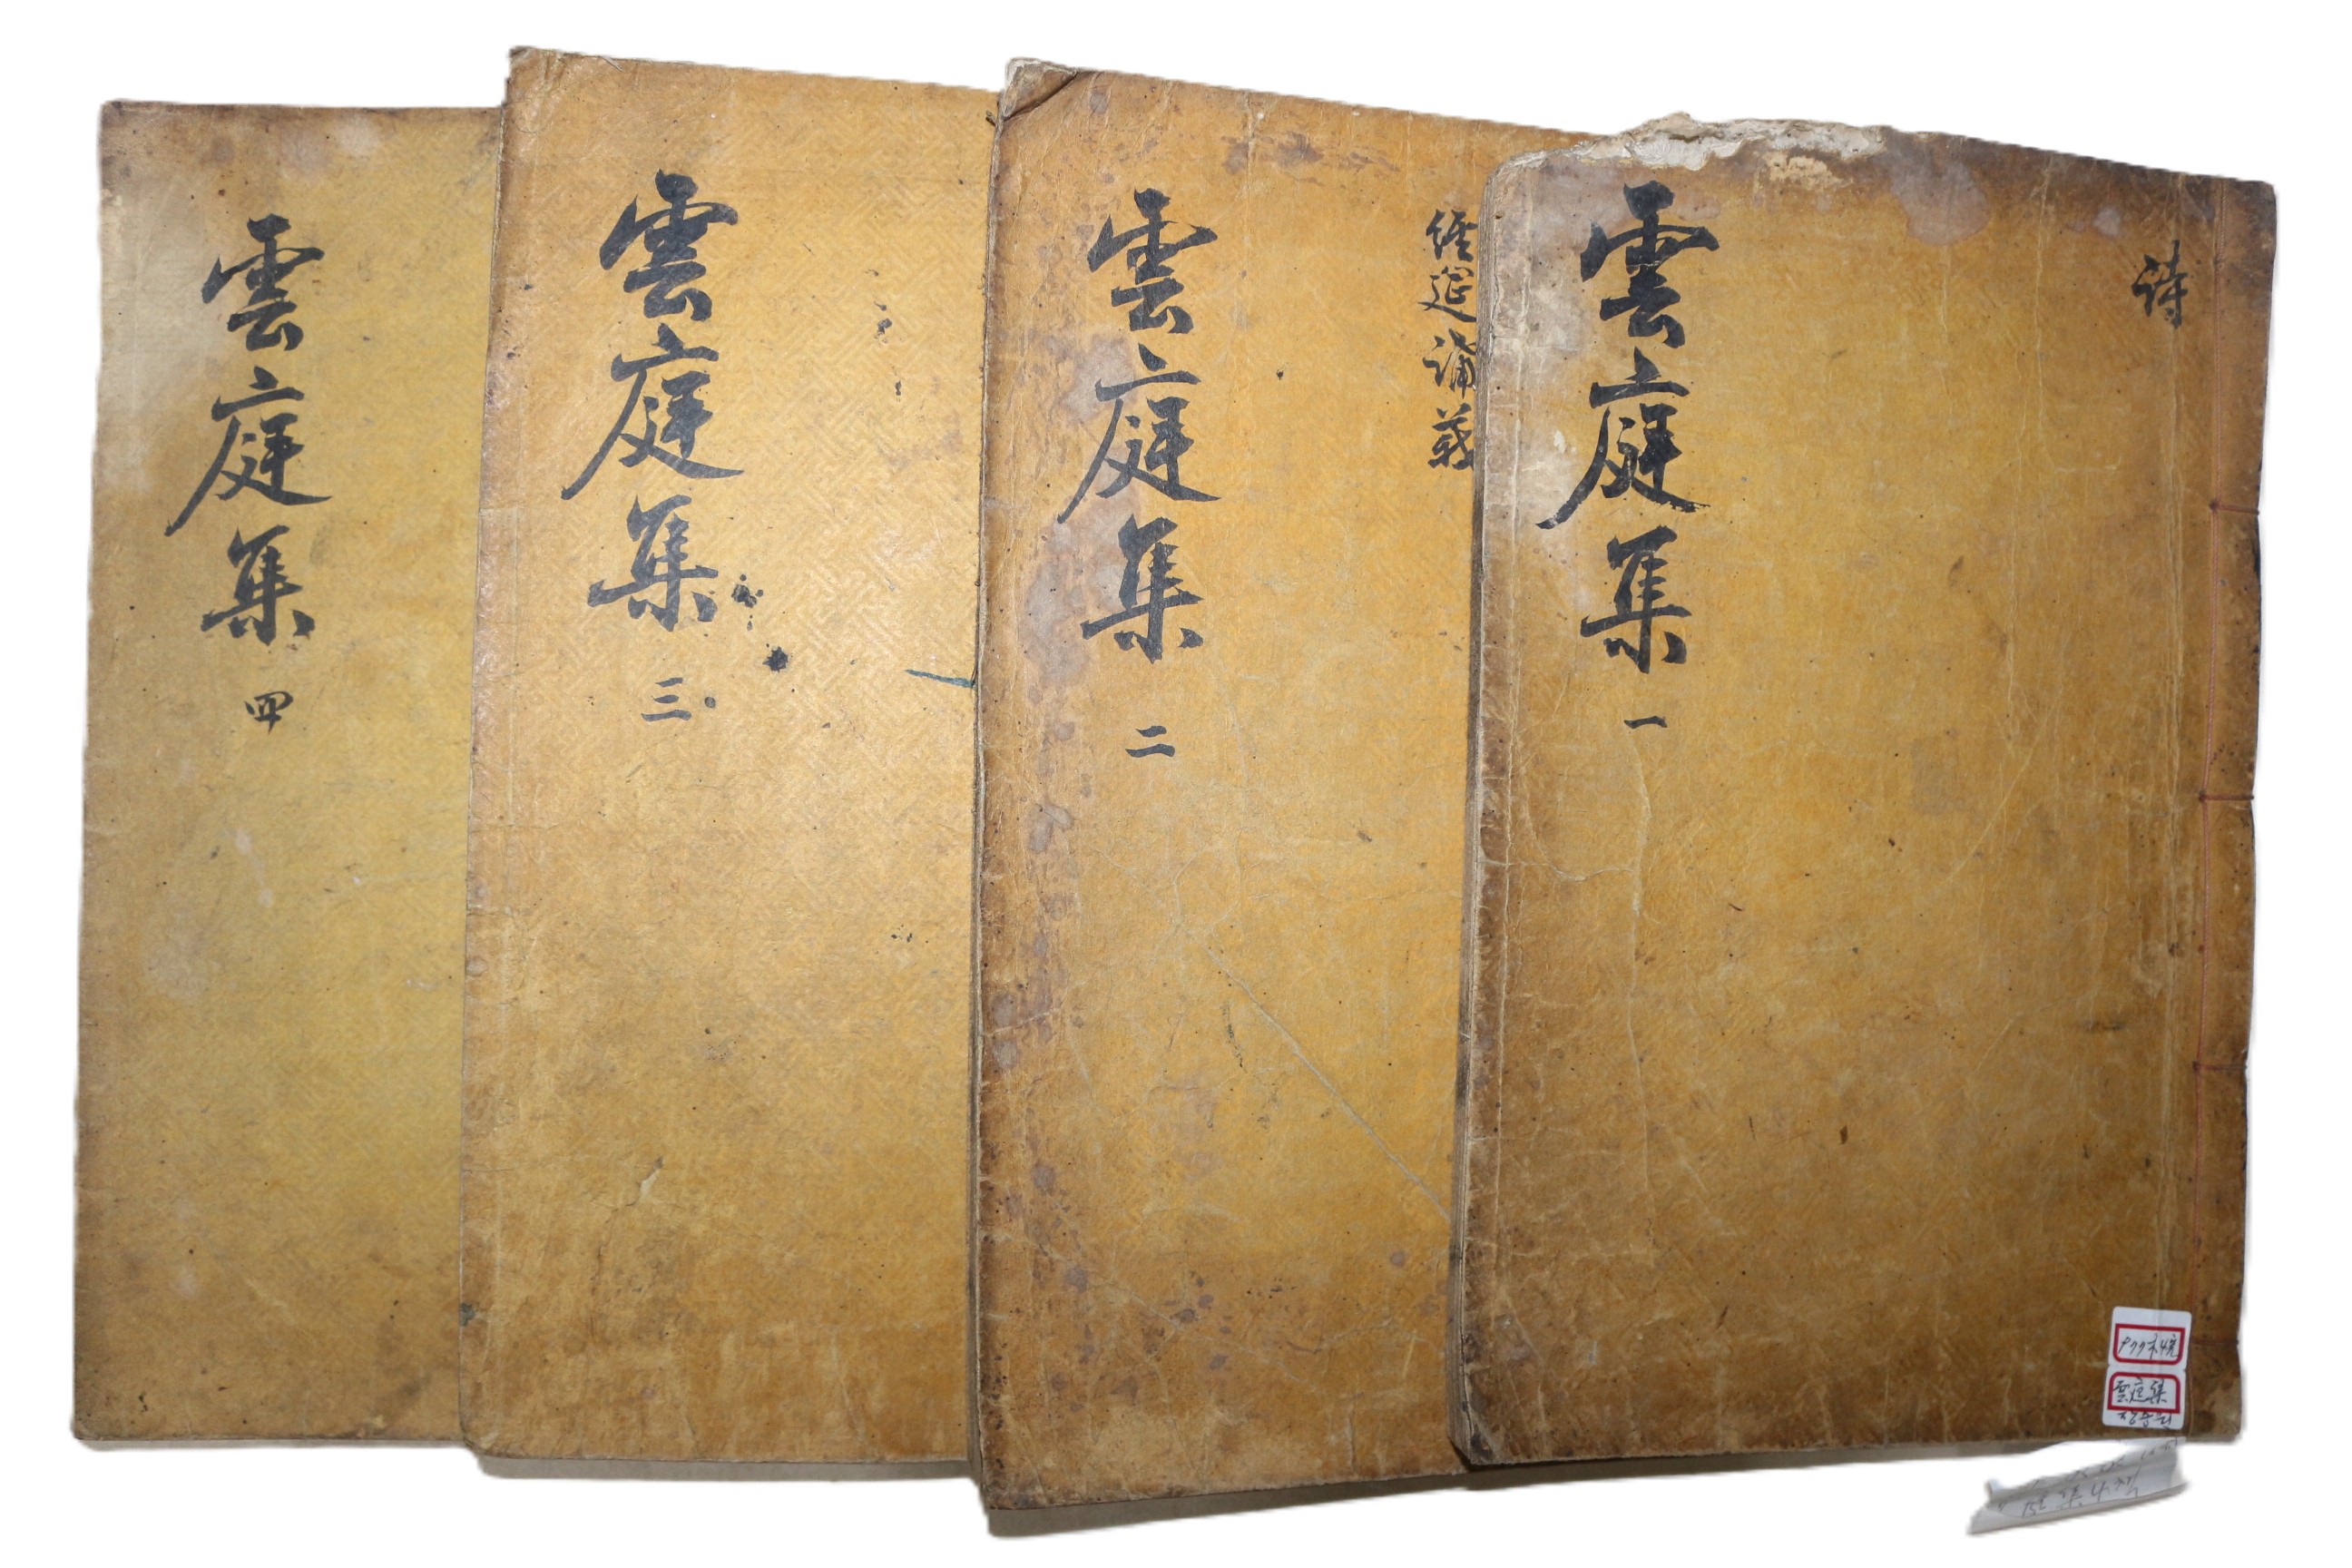 詩
雲庭集 一
經筵講義
雲庭集 二
雲庭集 三
雲庭集 四
雲庭集